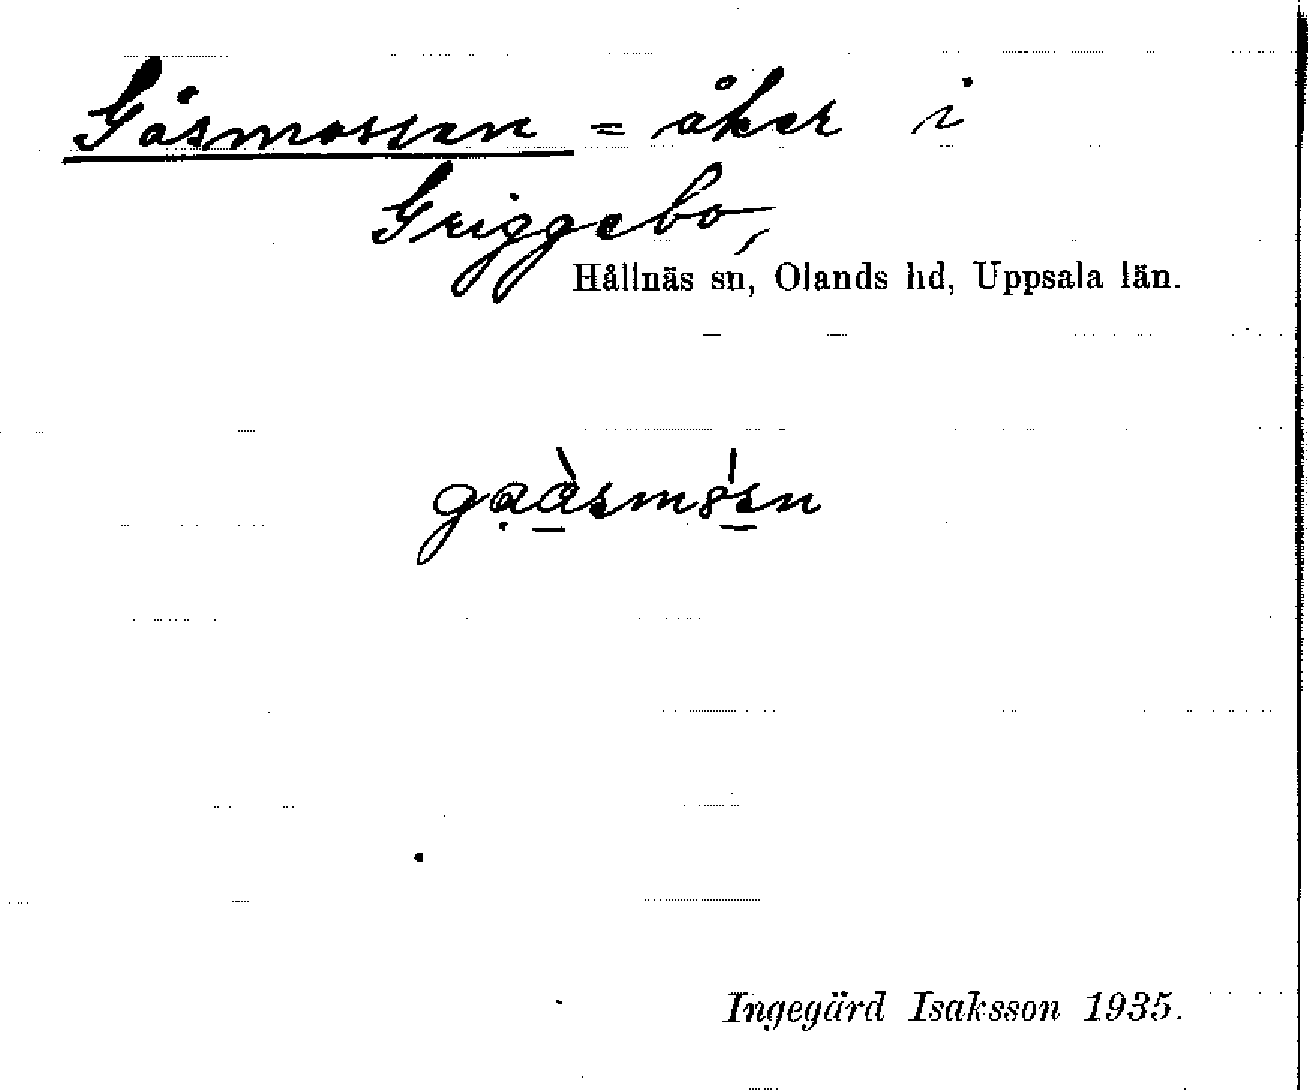 Gåsmossen = åker i
Griggebo,
Hållnäs sn, Olands hd, Uppsala län.
Ingegärd Isaksson 1935.